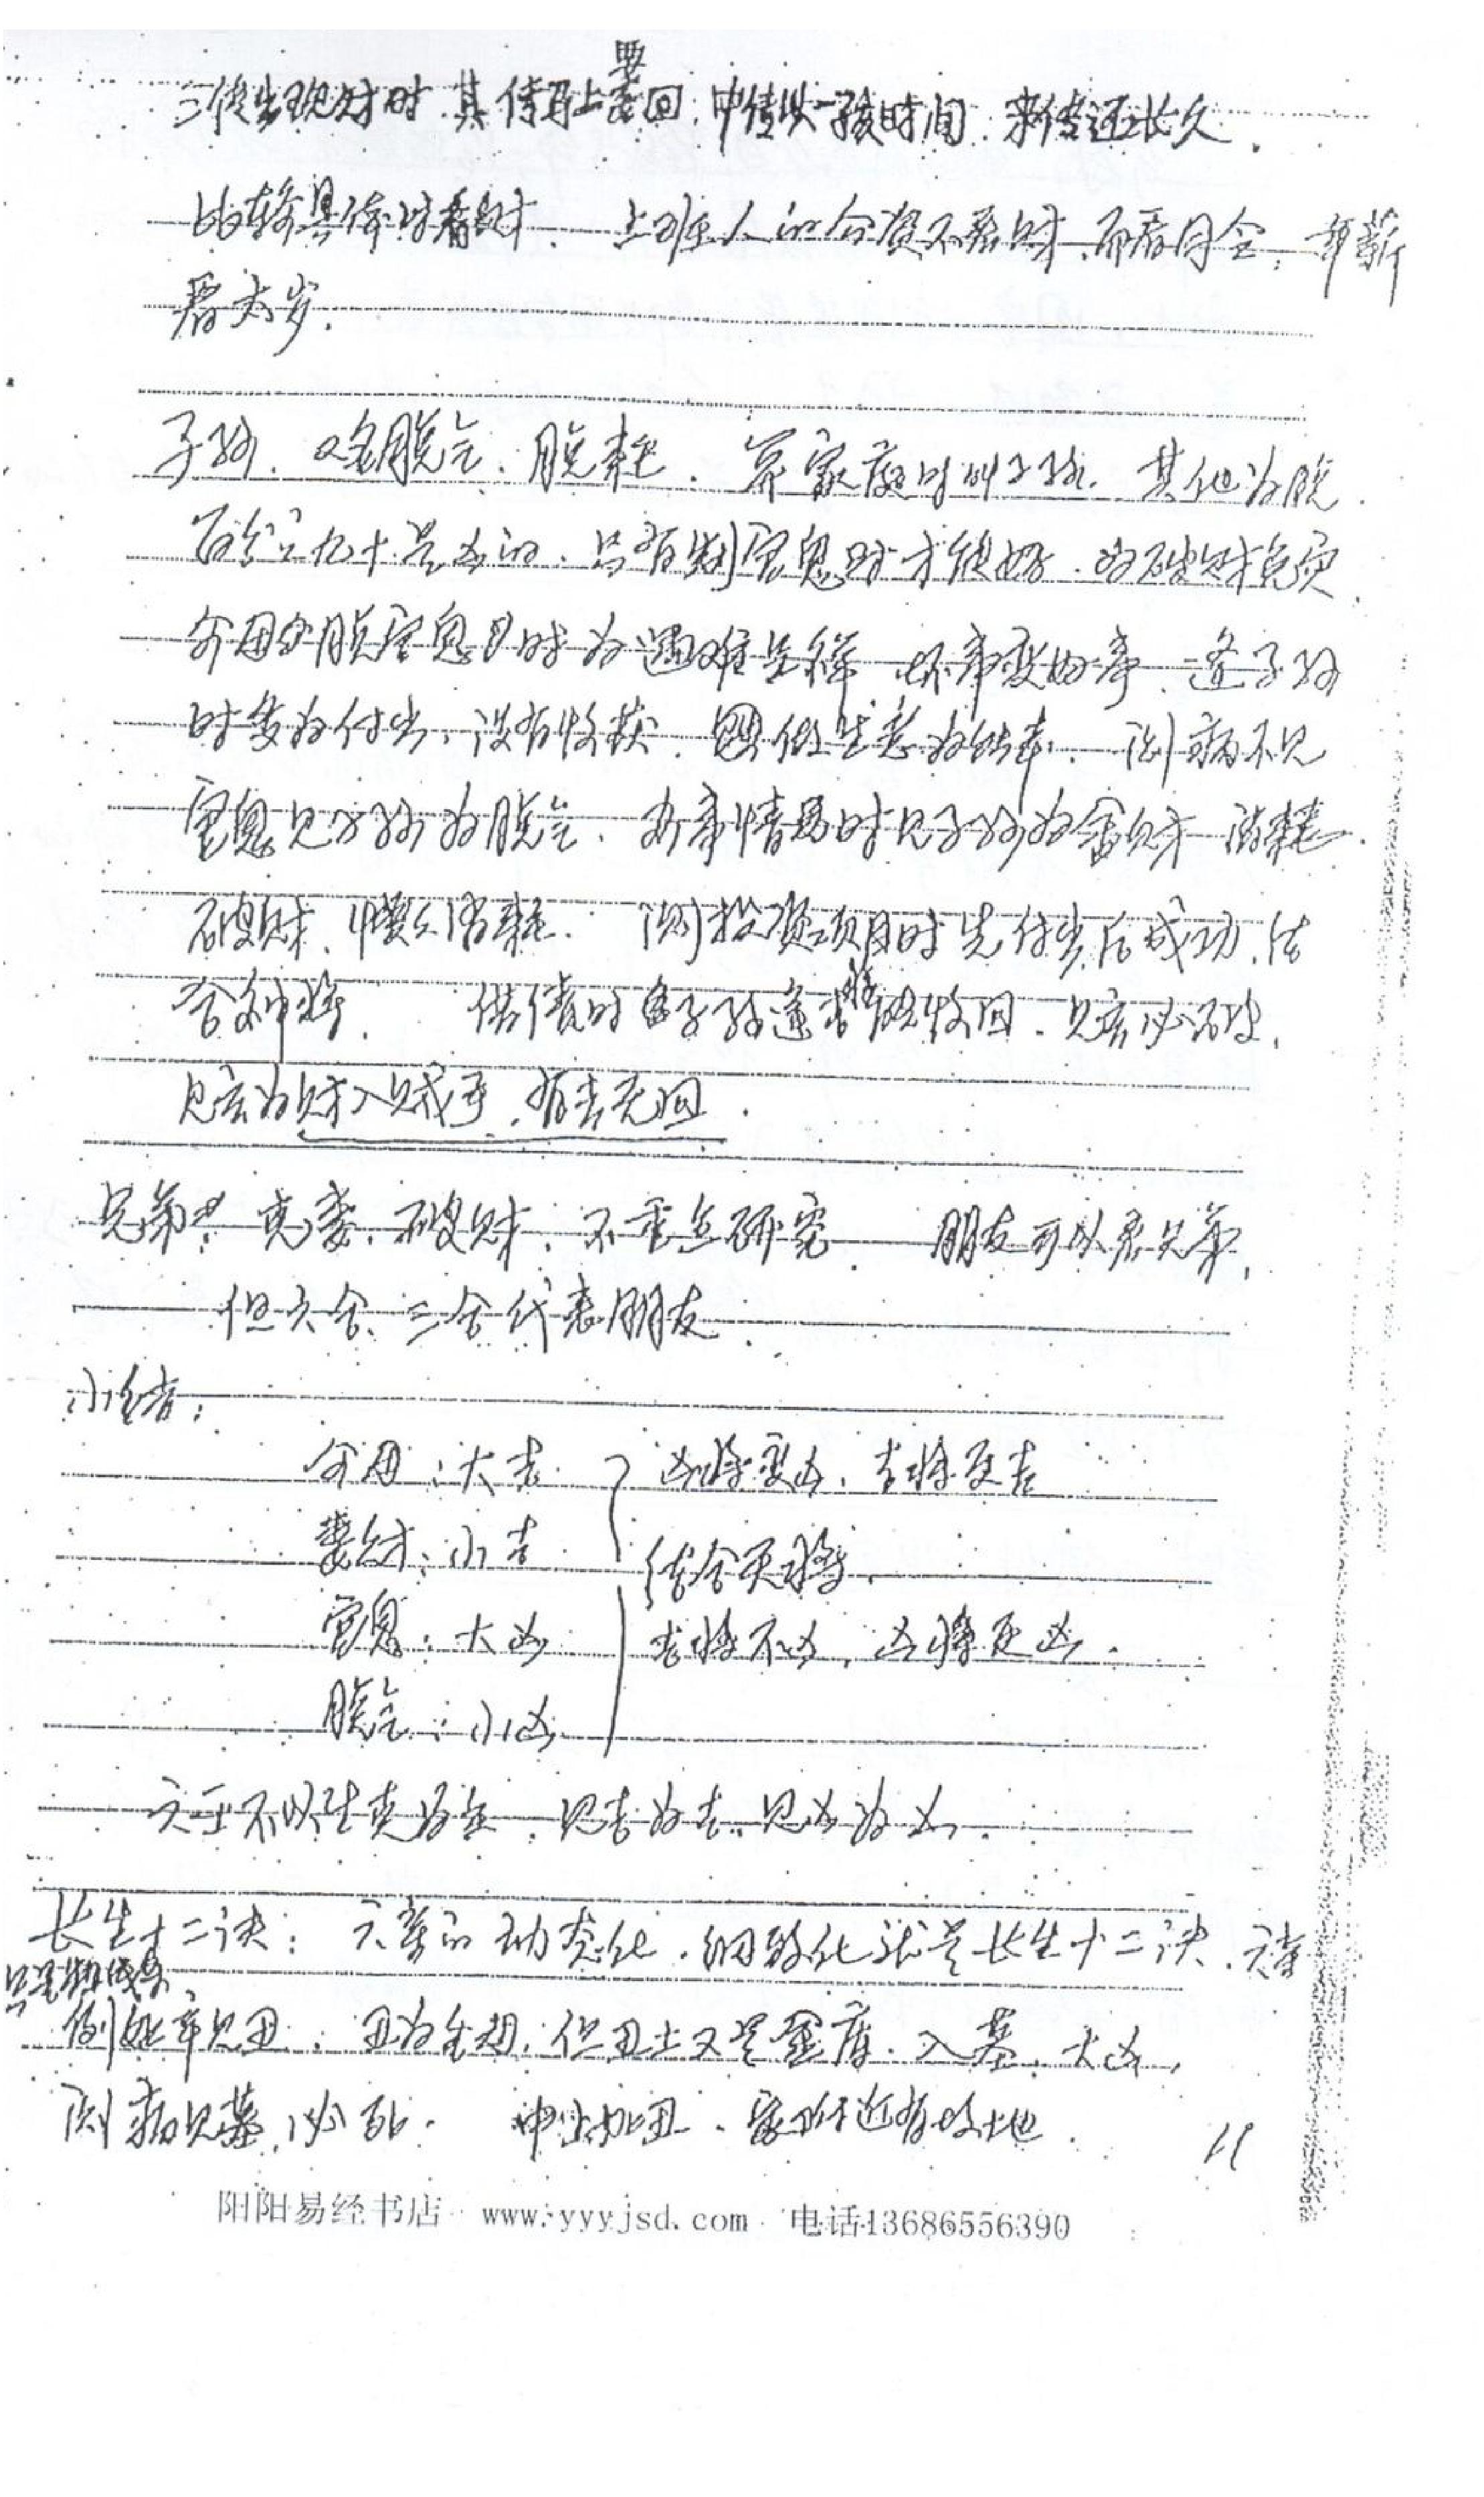 三传出现财时 其传马上要回. 中传收一段时间. 末传还长久.
比较具体时看财. 上班人的公资不看财. 而看月令. 年薪
看太岁.
子孙. 又名脱气. 脱耗. 算家庭时叫子孙. 其他为脱.
百分之九十是凶的. 只有制官鬼时才能好. 为破财负责.
父母脱官鬼时为遇难呈祥. 坏事变好事. 逢子孙
时多为付出, 没有收获. 做生意为结本. 测病不见
官鬼见子孙为脱气. 办事情看时见子孙为舍财 消耗.
破财. 慢慢消耗. 测投资项目时先付出后成功. 结
合神将. 借债时 子孙逢吉 收回. 见玄必不决.
见玄为财入贼手. 有去无回.
兄弟: 克妻. 破财. 不重点研究. 朋友可以看兄弟.
但六合. 三合代表朋友.
小结:
父母: 大吉. 凶将变凶. 吉将更吉
妻财: 小吉 结合天将.
官鬼: 大凶 吉将不凶. 凶将更凶.
脱气: 小凶
六壬不以生克为主. 见吉为吉. 见凶为凶.
长生十二诀: 六亲的动态化. 细致化就是长生十二诀. 六亲
只是粗线条
例如辛见丑. 丑为生扭. 但丑土又是金库. 入墓. 大凶.
测病见墓, 必死. 中上加丑. 家附近有坟地. 11
阳阳易经书店 www.yyyjsd.com 电话13686556390